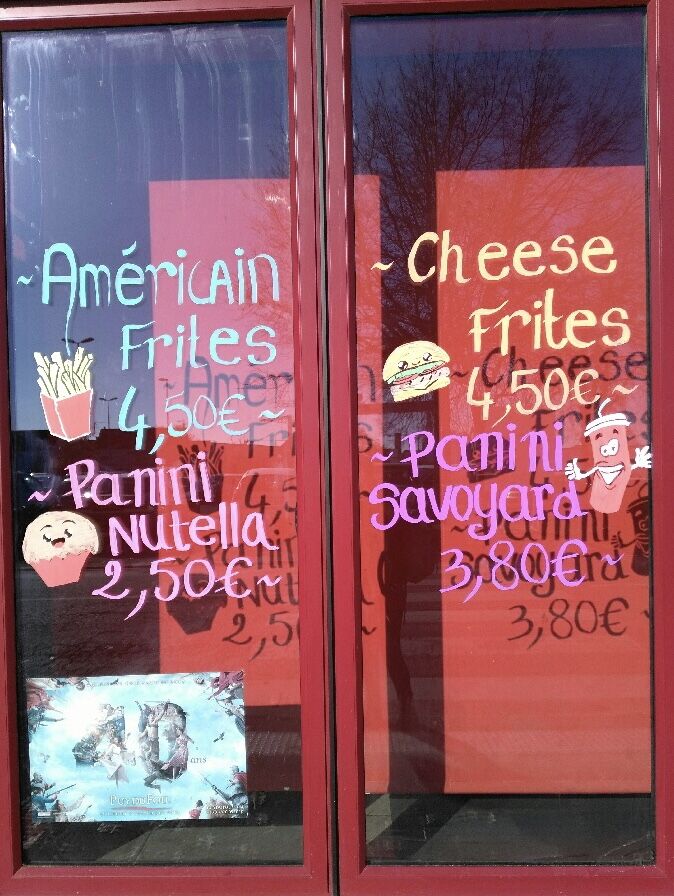 ~ Américain
Frites
4,50€ ~
~ Panini
Nutella
2,50€ ~
40
ans
Puy du Fou
~ Cheese
Frites
4,50€ ~
~ Panini
Savoyard
3,80€ ~